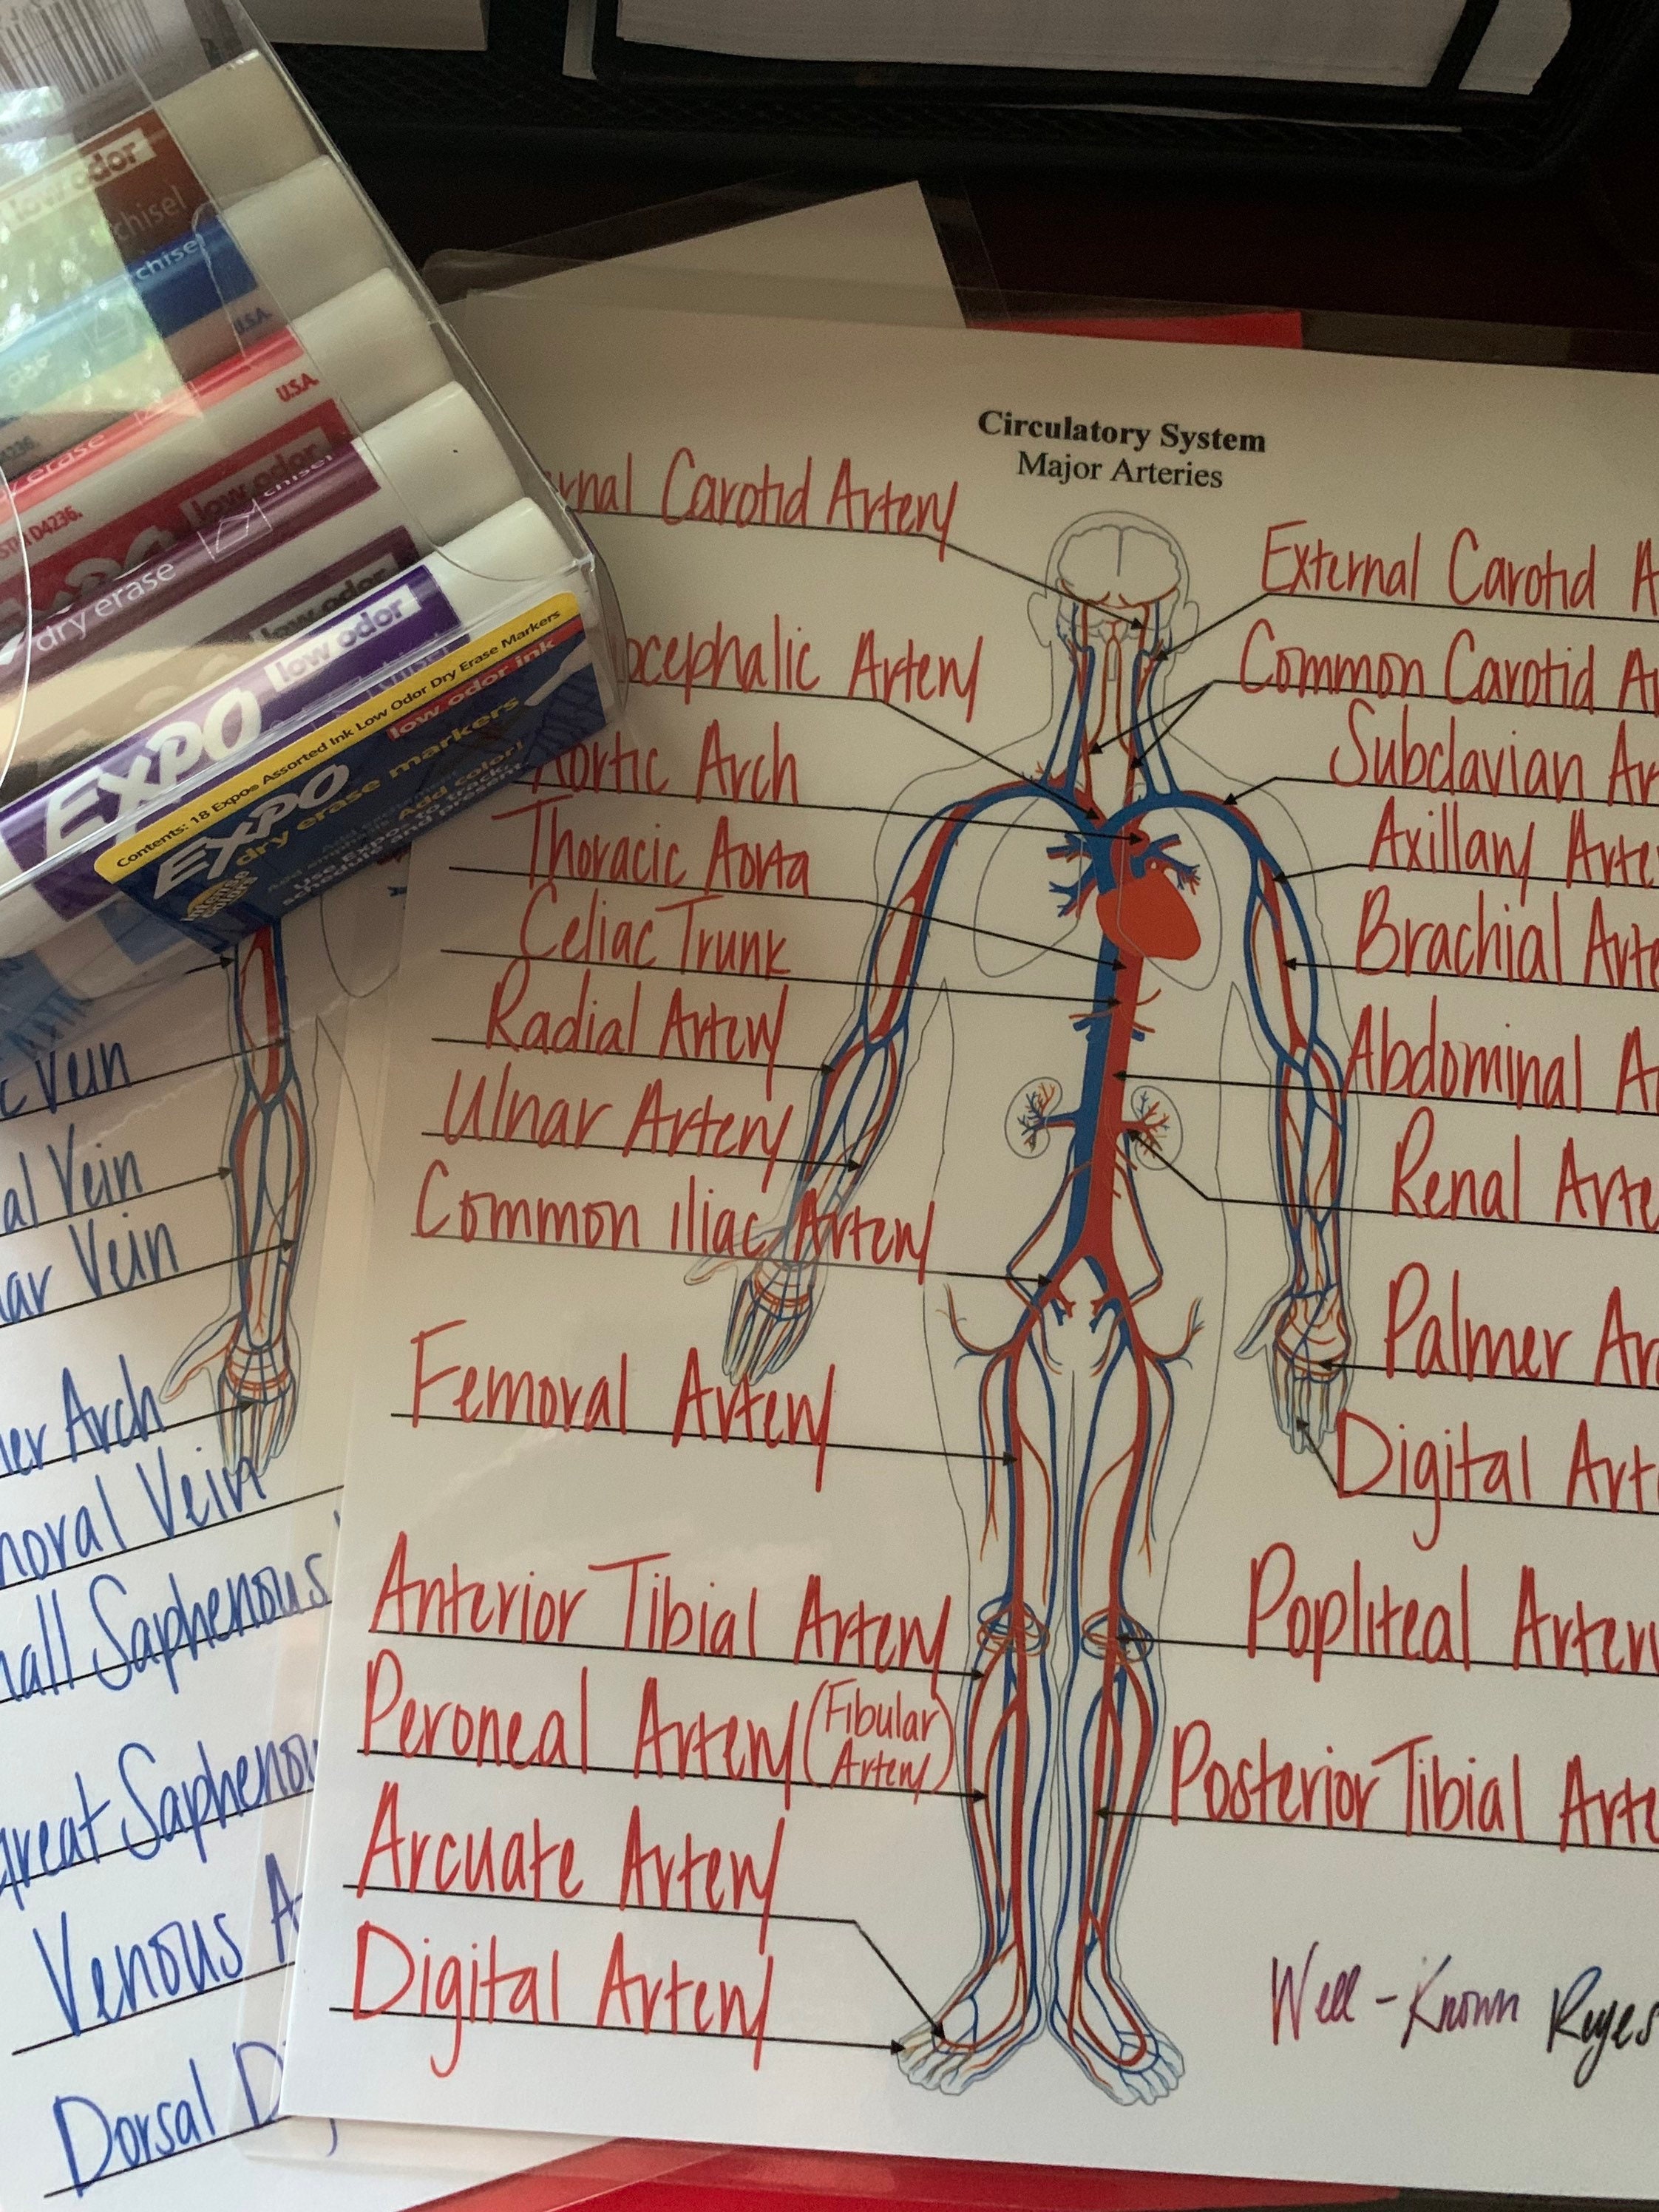 low odor
chisel
chisel
U.S.A.
U.S.A.
erase
D4236.
low odor
chisel
dry erase
low odor
low odor
EXPO
chisel
Contents: 18 Expo® Assorted Ink Low Odor Dry Erase Markers
low odor ink
EXPO
dry erase markers
Circulatory System
Major Arteries
rnal Carotid Artery
ocephalic Artery
Aortic Arch
Thoracic Aorta
Celiac Trunk
Radial Artery
Ulnar Artery
Common iliac Artery
Femoral Artery
Anterior Tibial Artery
Peroneal Artery (Fibular Artery)
Arcuate Artery
Digital Artery
External Carotid A
Common Carotid Ar
Subclavian Ar
Axillary Arte
Brachial Arte
Abdominal A
Renal Arte
Palmer Ar
Digital Art
Popliteal Artery
Posterior Tibial Arte
Well-Known Reyes
c Vein
al Vein
ar Vein
er Arch
moral Vein
mall Saphenous
Great Saphenou
Venous A
Dorsal D